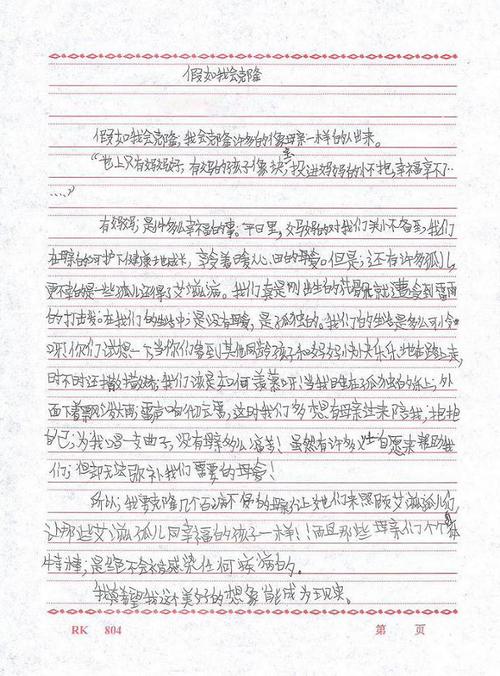 假如我会克隆
假如我会克隆,我会克隆许多的像母亲一样的人出来。
“世上只有妈妈好,有妈的孩子像块宝,投进妈妈的怀抱,幸福享不了…
……”
有妈妈,是件多么幸福的事。平日里,妈妈的对我们关心不备至,我们
在母亲的呵护下健康地成长,享受着暖人心田的母爱。但是,还有许多孤儿,
更不幸的是一些孤儿还得了艾滋病。我们真是刚出生的就遭受到雷雨
的打击。在我们的生活中,是没有母爱,是孤独的。我们的生活是多么可怜
呀!你们试想一下,当你们看到其他同龄孩子和妈妈快快乐乐地在路上走,
时不时还撒撒娇,我们该是如何羡慕呀!当我们坐在孤独的床上,外
面下着大雨雷声响彻云霄,这时我们多想有母亲过来陪我,抱抱
自己,为我唱一支曲子,没有母亲多么痛苦!虽然有许多自愿来帮助我
们,但却无法弥补我们需要的母爱!
所以,我要克隆几个百病不侵的母亲,让她们来照顾艾滋孤儿们,
让那些艾滋孤儿同幸福的孩子一样!而且那些母亲们个个
是绝不会被感染任何疾病的。
我真希望我这个美好的想象能成为现实。
RK 804 第 页